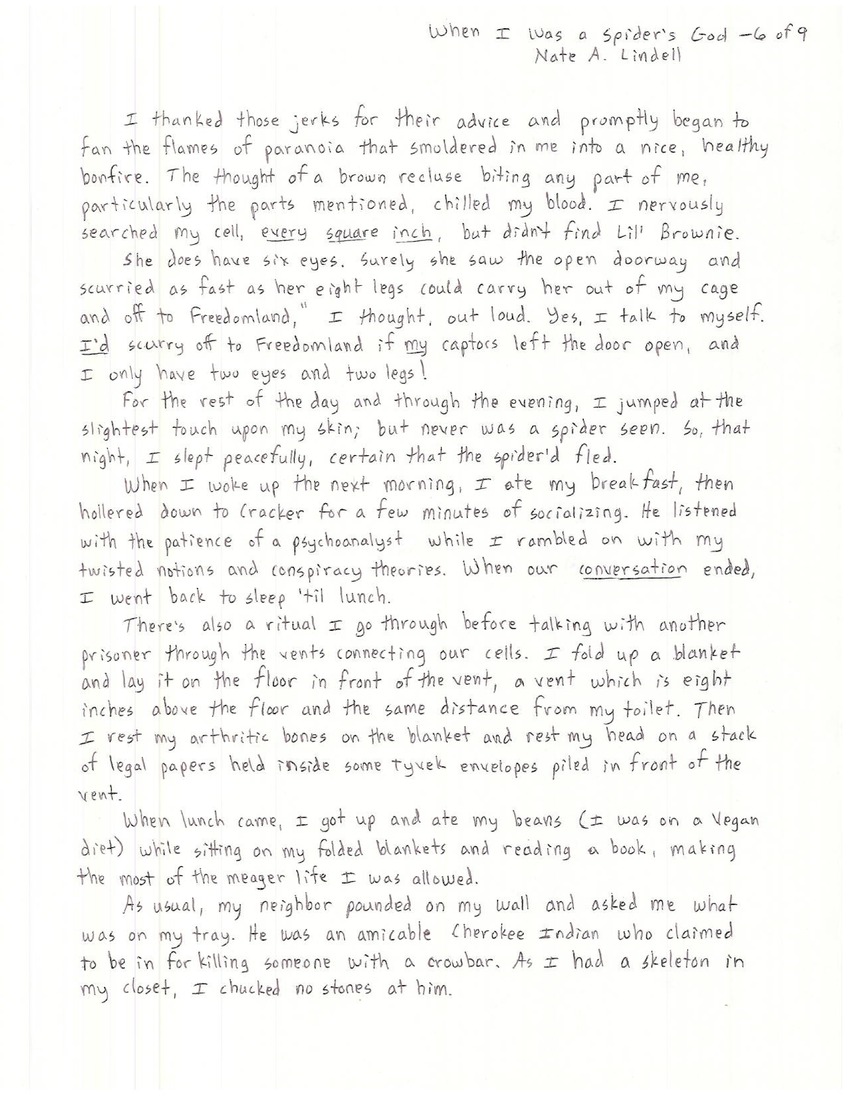 When I Was a Spider's God -6 of 9
Nate A. Lindell
I thanked those jerks for their advice and promptly began to
fan the flames of paranoia that smoldered in me into a nice, healthy
bonfire. The thought of a brown recluse biting any part of me,
particularly the parts mentioned, chilled my blood. I nervously
searched my cell, every square inch, but didn't find Lil' Brownie.
She does have six eyes. Surely she saw the open doorway and
scurried as fast as her eight legs could carry her out of my cage
and off to Freedomland," I thought, out loud. Yes, I talk to myself.
I'd scurry off to Freedomland if my captors left the door open, and
I only have two eyes and two legs!
For the rest of the day and through the evening, I jumped at the
slightest touch upon my skin; but never was a spider seen. So, that
night, I slept peacefully, certain that the spider'd fled.
When I woke up the next morning, I ate my breakfast, then
hollered down to Cracker for a few minutes of socializing. He listened
with the patience of a psychoanalyst while I rambled on with my
twisted notions and conspiracy theories. When our conversation ended,
I went back to sleep 'til lunch.
There's also a ritual I go through before talking with another
prisoner through the vents connecting our cells. I fold up a blanket
and lay it on the floor in front of the vent, a vent which is eight
inches above the floor and the same distance from my toilet. Then
I rest my arthritic bones on the blanket and rest my head on a stack
of legal papers held inside some Tyvek envelopes piled in front of the
vent.
When lunch came, I got up and ate my beans (I was on a Vegan
diet) while sitting on my folded blankets and reading a book, making
the most of the meager life I was allowed.
As usual, my neighbor pounded on my wall and asked me what
was on my tray. He was an amicable Cherokee Indian who claimed
to be in for killing someone with a crowbar. As I had a skeleton in
my closet, I chucked no stones at him.